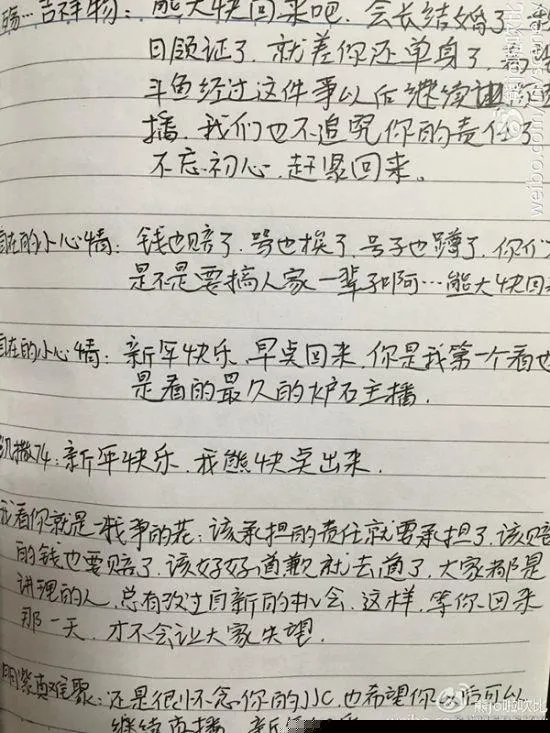 吉祥物：熊大快回来吧．会长结婚了
日领证了．就差你还单身了．希
斗鱼经过这件事以后继续让你
播．我们也不追究你的责任了
不忘初心．赶紧回来。
自在的小心情：钱也赔了．骂也挨了．号子也蹲了．你们
是不是要搞人家一辈子啊…熊大快回
自在的小心情：新年快乐．早点回来．你是我第一个看也
是看的最久的炉石主播．
撒74：新年快乐．我熊快点出来．
我看你就是一战争的花：该承担的责任就要承担了．该赔
的钱也要赔了．该好好道歉就去道了．大家都是
讲理的人．总有改过自新的机会．这样．等你回来
那一天．才不会让大家失望．
紫真难聚：还是很怀念你的JJC．也希望你以后可以
继续直播．新
weibo.com/
熊jo啦吹比